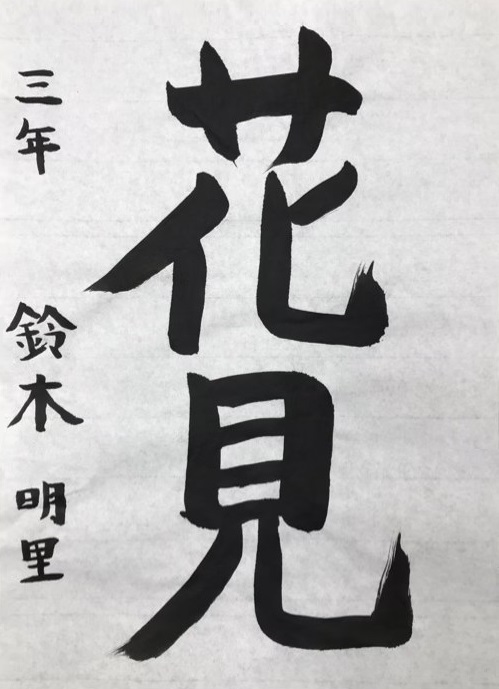 花見
三年 鈴木 明里